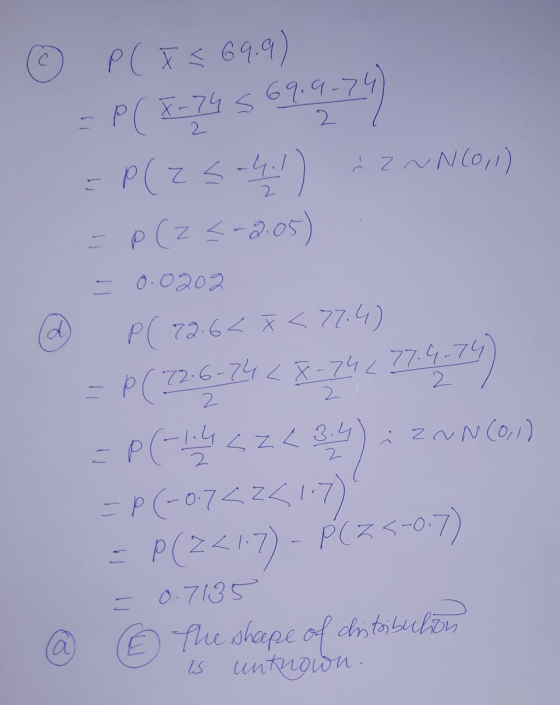 (c) P( x̄ ≤ 69.9)
= P( (x̄-74)/2 ≤ (69.9-74)/2 )
= P( z ≤ -4.1/2 ) ∴ z ~ N(0,1)
= P( z ≤ -2.05)
= 0.0202
(d) P( 72.6 < x̄ < 77.4)
= P( (72.6-74)/2 < (x̄-74)/2 < (77.4-74)/2 )
= P( -1.4/2 < z < 3.4/2 ) ; z ~ N(0,1)
= P(-0.7 < z < 1.7)
= P(z < 1.7) - P(z < -0.7)
= 0.7135
(a) (E) The shape of distribution
is unknown.